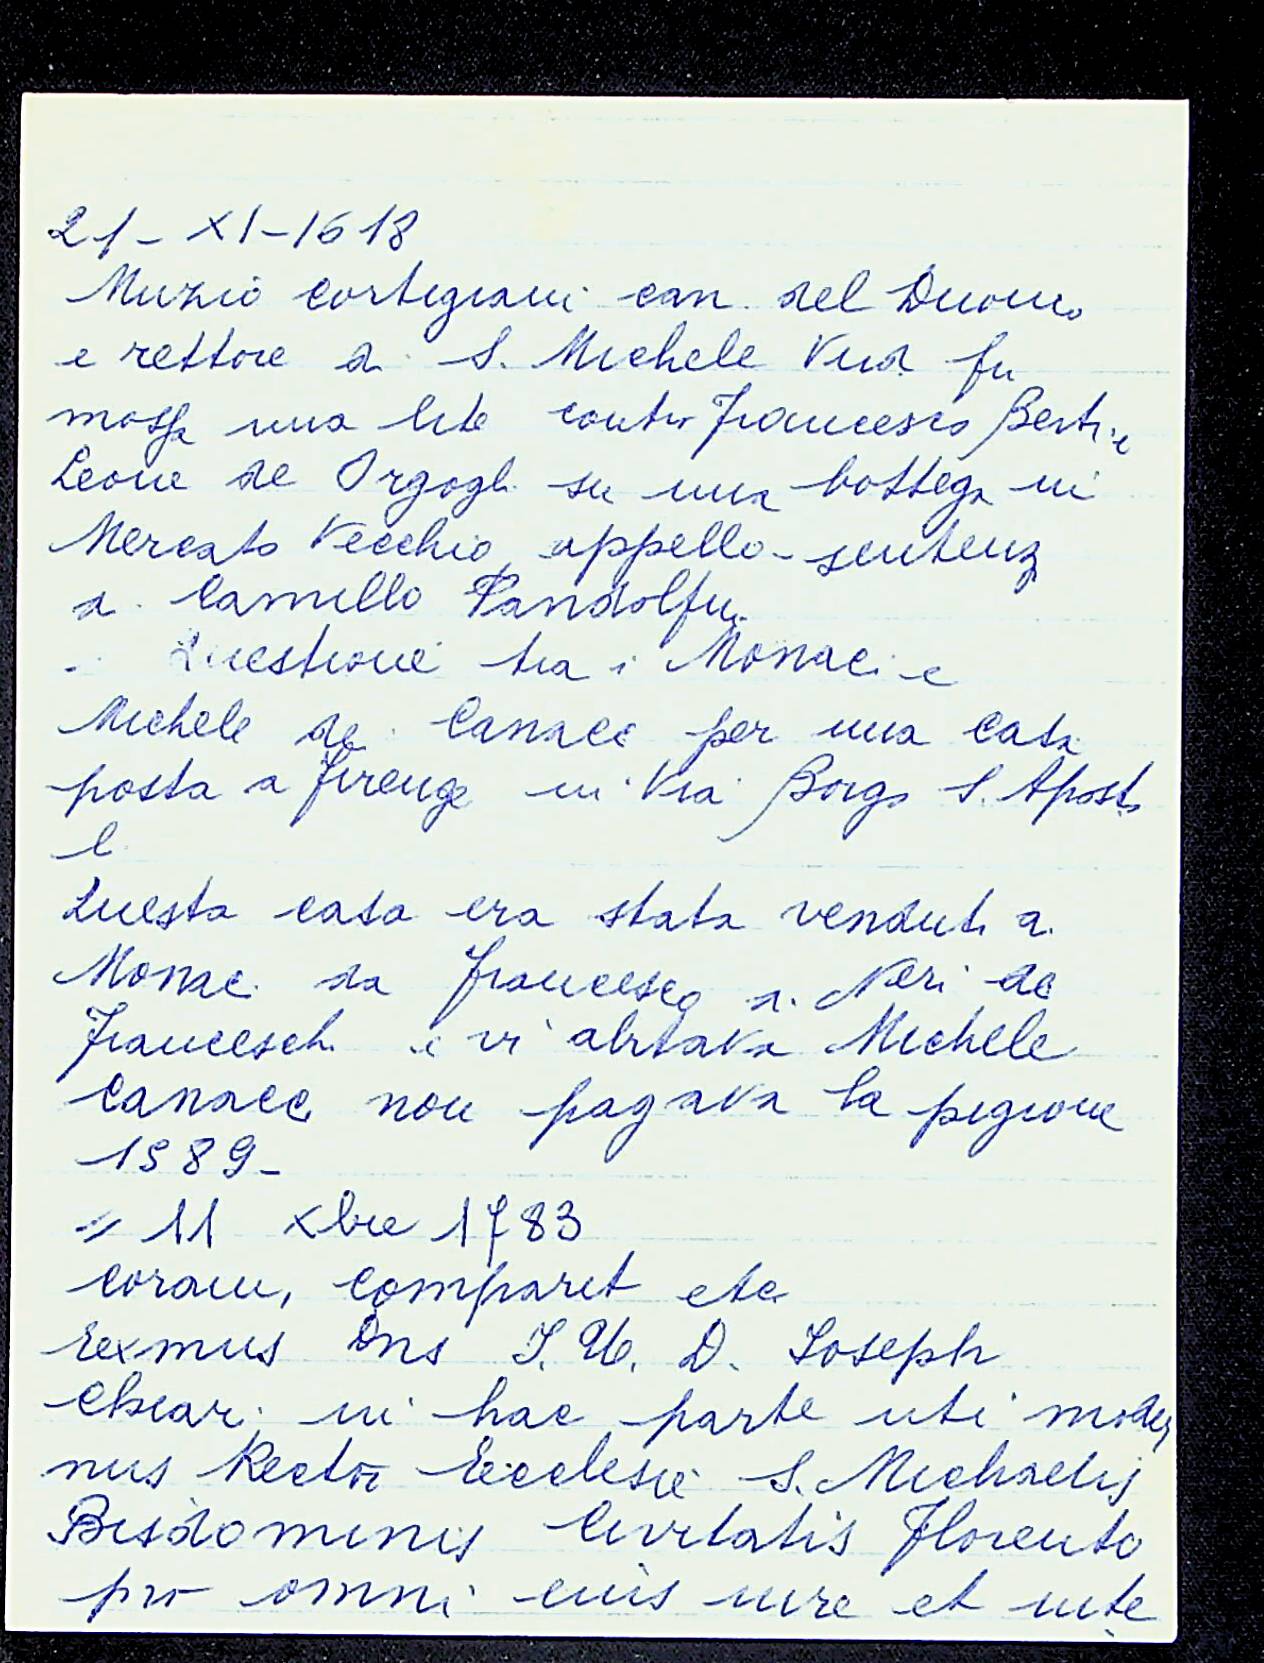 21 - XI - 1618
Muzio Cortigiani can. del Duomo
e rettore di S. Michele Visd. fu
mossa una lite contro Francesco Berti e
Leone de Orgogli su una bottega in
Mercato Vecchio, appello - sentenz
di Camillo Pandolfini
- Questione tra i Monaci e
Michele de Canacci per una casa
posta a Firenze in Via Borgo S. Aposto
li
Questa casa era stata venduta ai
Monaci da Francesco di Neri de
Franceschi e vi abitava Michele
Canacci non pagava la pigione
1589 -
" 11 xbre 1783
Coram, Comparet etc
Exmus Dns J. U. D. Joseph
Chiari in hac parte uti moder
nus Rector Ecclesie S. Michaelis
Bisdominis Civitatis Florento
pro omni euis iure et inte